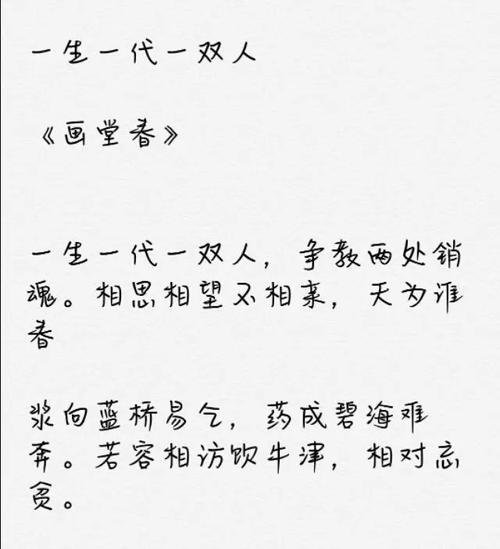 一生一代一双人
《画堂春》
一生一代一双人，争教两处销
魂。相思相望不相亲，天为谁
春
浆向蓝桥易乞，药成碧海难
奔。若容相访饮牛津，相对忘
贫。